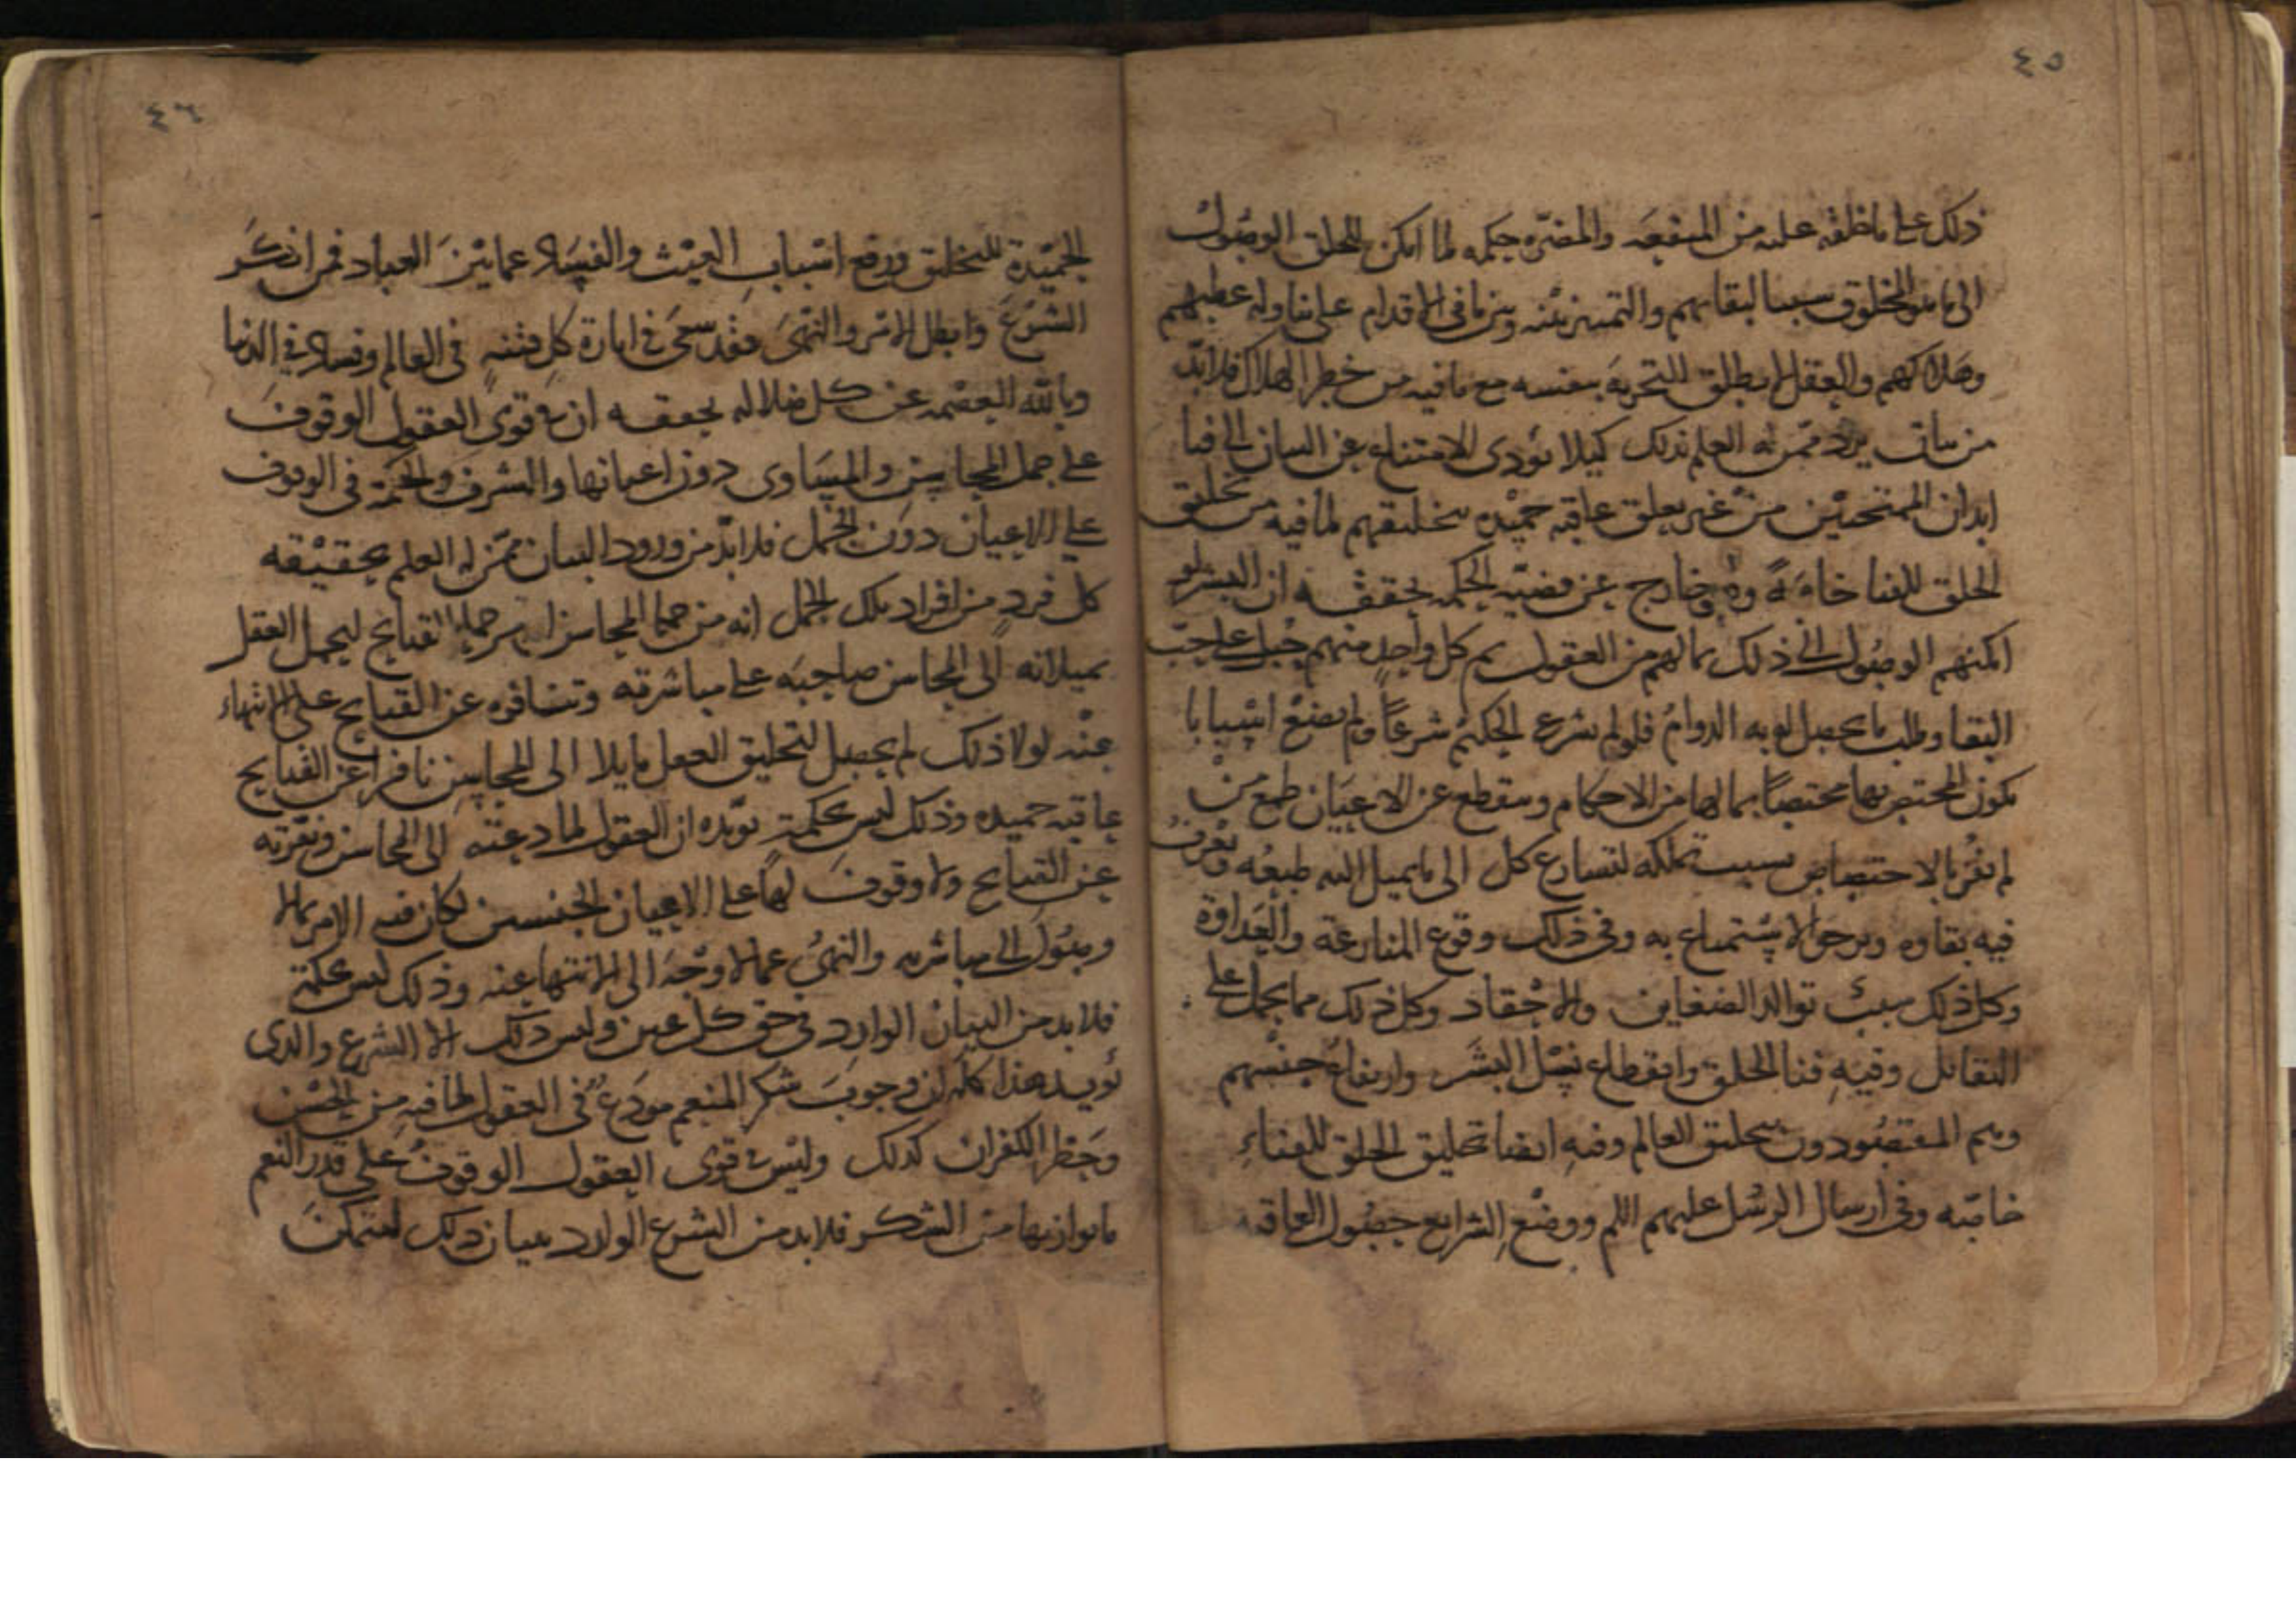 ٤٥
ذلك على ما خلقه عليه من المنفعه والمضرّه حكمه لما امكن للخلق الوصول
الى ما هو المخلوق سببا لبقائهم والتمييز بينه وبين ما في الاقدام على تناوله عطبهم
وهلاكهم والعقل لا يطلق التجربة بنفسه مع ما فيه من خطر الهلاك فلا بدّ
من بيان يرد ممّن له العلم بذلك كيلا يؤدى الامتناع عن البيان الى فنا
ابدان الممتحنين من غير تعلق عاقبه حميده بتخليقهم لما فيه من تخليق
الخلق للفنا خاصةً وهو خارج عن قضيّه الحكمه يحققه ان البشر لو
امكنهم الوصول الى ذلك بما لهم من العقول ثم كل واحد منهم جُبل على حبّ
البقا وطلب ما يحصل له به الدوام فلو لم يشرع الحكيم شرعاً ولم يضع اسبابا
يكون المختص بها مختصاً بما لها من الاحكام وينقطع عن الاعيان طمع من
لم يفز بالاختصاص بسبب تملكه لتسارع كل الى ما يميل اليه طبعُه ويعرفُ
فيه بقاوه ويرجو الاستمتاع به وفي ذلك وقوع المنازعة والعداوة
وكل ذلك سببُ توالد الضغاين والاحقاد وكل ذلك مما يحمل على
التقاتل وفيهِ فنا الخلق وانقطاع نسْل البشَر وارتفاعُ جنسهم
وهم المقصُودون بتخليق العالم وفيهِ ايضا تخليق الخلق للفناءِ
خاصّه وفي ارسال الرسُل عليهم السلم ووضْع الشرايع حصُول العاقبه
٤٦
الحَميْدة للتخليق ورفع اسْباب العيْث والفسَاد عما بيْنَ العباد فمن انكَر
الشرْعَ وابطل الامْر والنهْىَ فقد سعَى في اثارة كلِ فتنهٍ في العالم وفساد في الدنيا
وبالله العصْمه عن كل ضلاله يحققه ان في قوى العقول الوقوفَ
على جمل المحاسن والمسَاوى دون اعيانها والشرف والحكمة في الوقوف
على الاعيان دوْن الجُمل فلا بدّ من ورود البيان ممّن له العلم بحقيْقه
كل فردٍ من افراد تلك الجُمل انه من جملة المحاسن او من جملة القبايح ليحمل العقل
بميلانه الى المحاسن صاحبَه على مباشرته وتنافره عن القبايح على الانتهاء
عنْه لولا ذلك لم يحصل لتخليق العقل مايلا الى المحاسن نافراً عن القبايح
عاقبه حميده وذلك ليس بحكمةٍ يؤيّده ان العقول لما دعته الى المحاسن ونفّرته
عن القبايح ولا وقوفَ لها على الاعيان الجنسين لكان فيه الامر بما لا
وصُول الى مباشرته والنهىُ عما لا وجْهَ الى الانتها عنه وذلك ليس بحكمة
فلا بد من البيان الوارد في حق كل عين وليس ذلك الا الشرع والذى
يُويد هذا كله ان وجوبَ شكر المنعم مودَعٌ في العقول لما فيه من الحسْن
وحَظْر الكفران كذلك وليْس في قوى العقول الوقوفُ على قدر النعم
ما يوازيها من الشكر فلا بد من الشرع الوارد ببيان ذلك ليتمكنَ